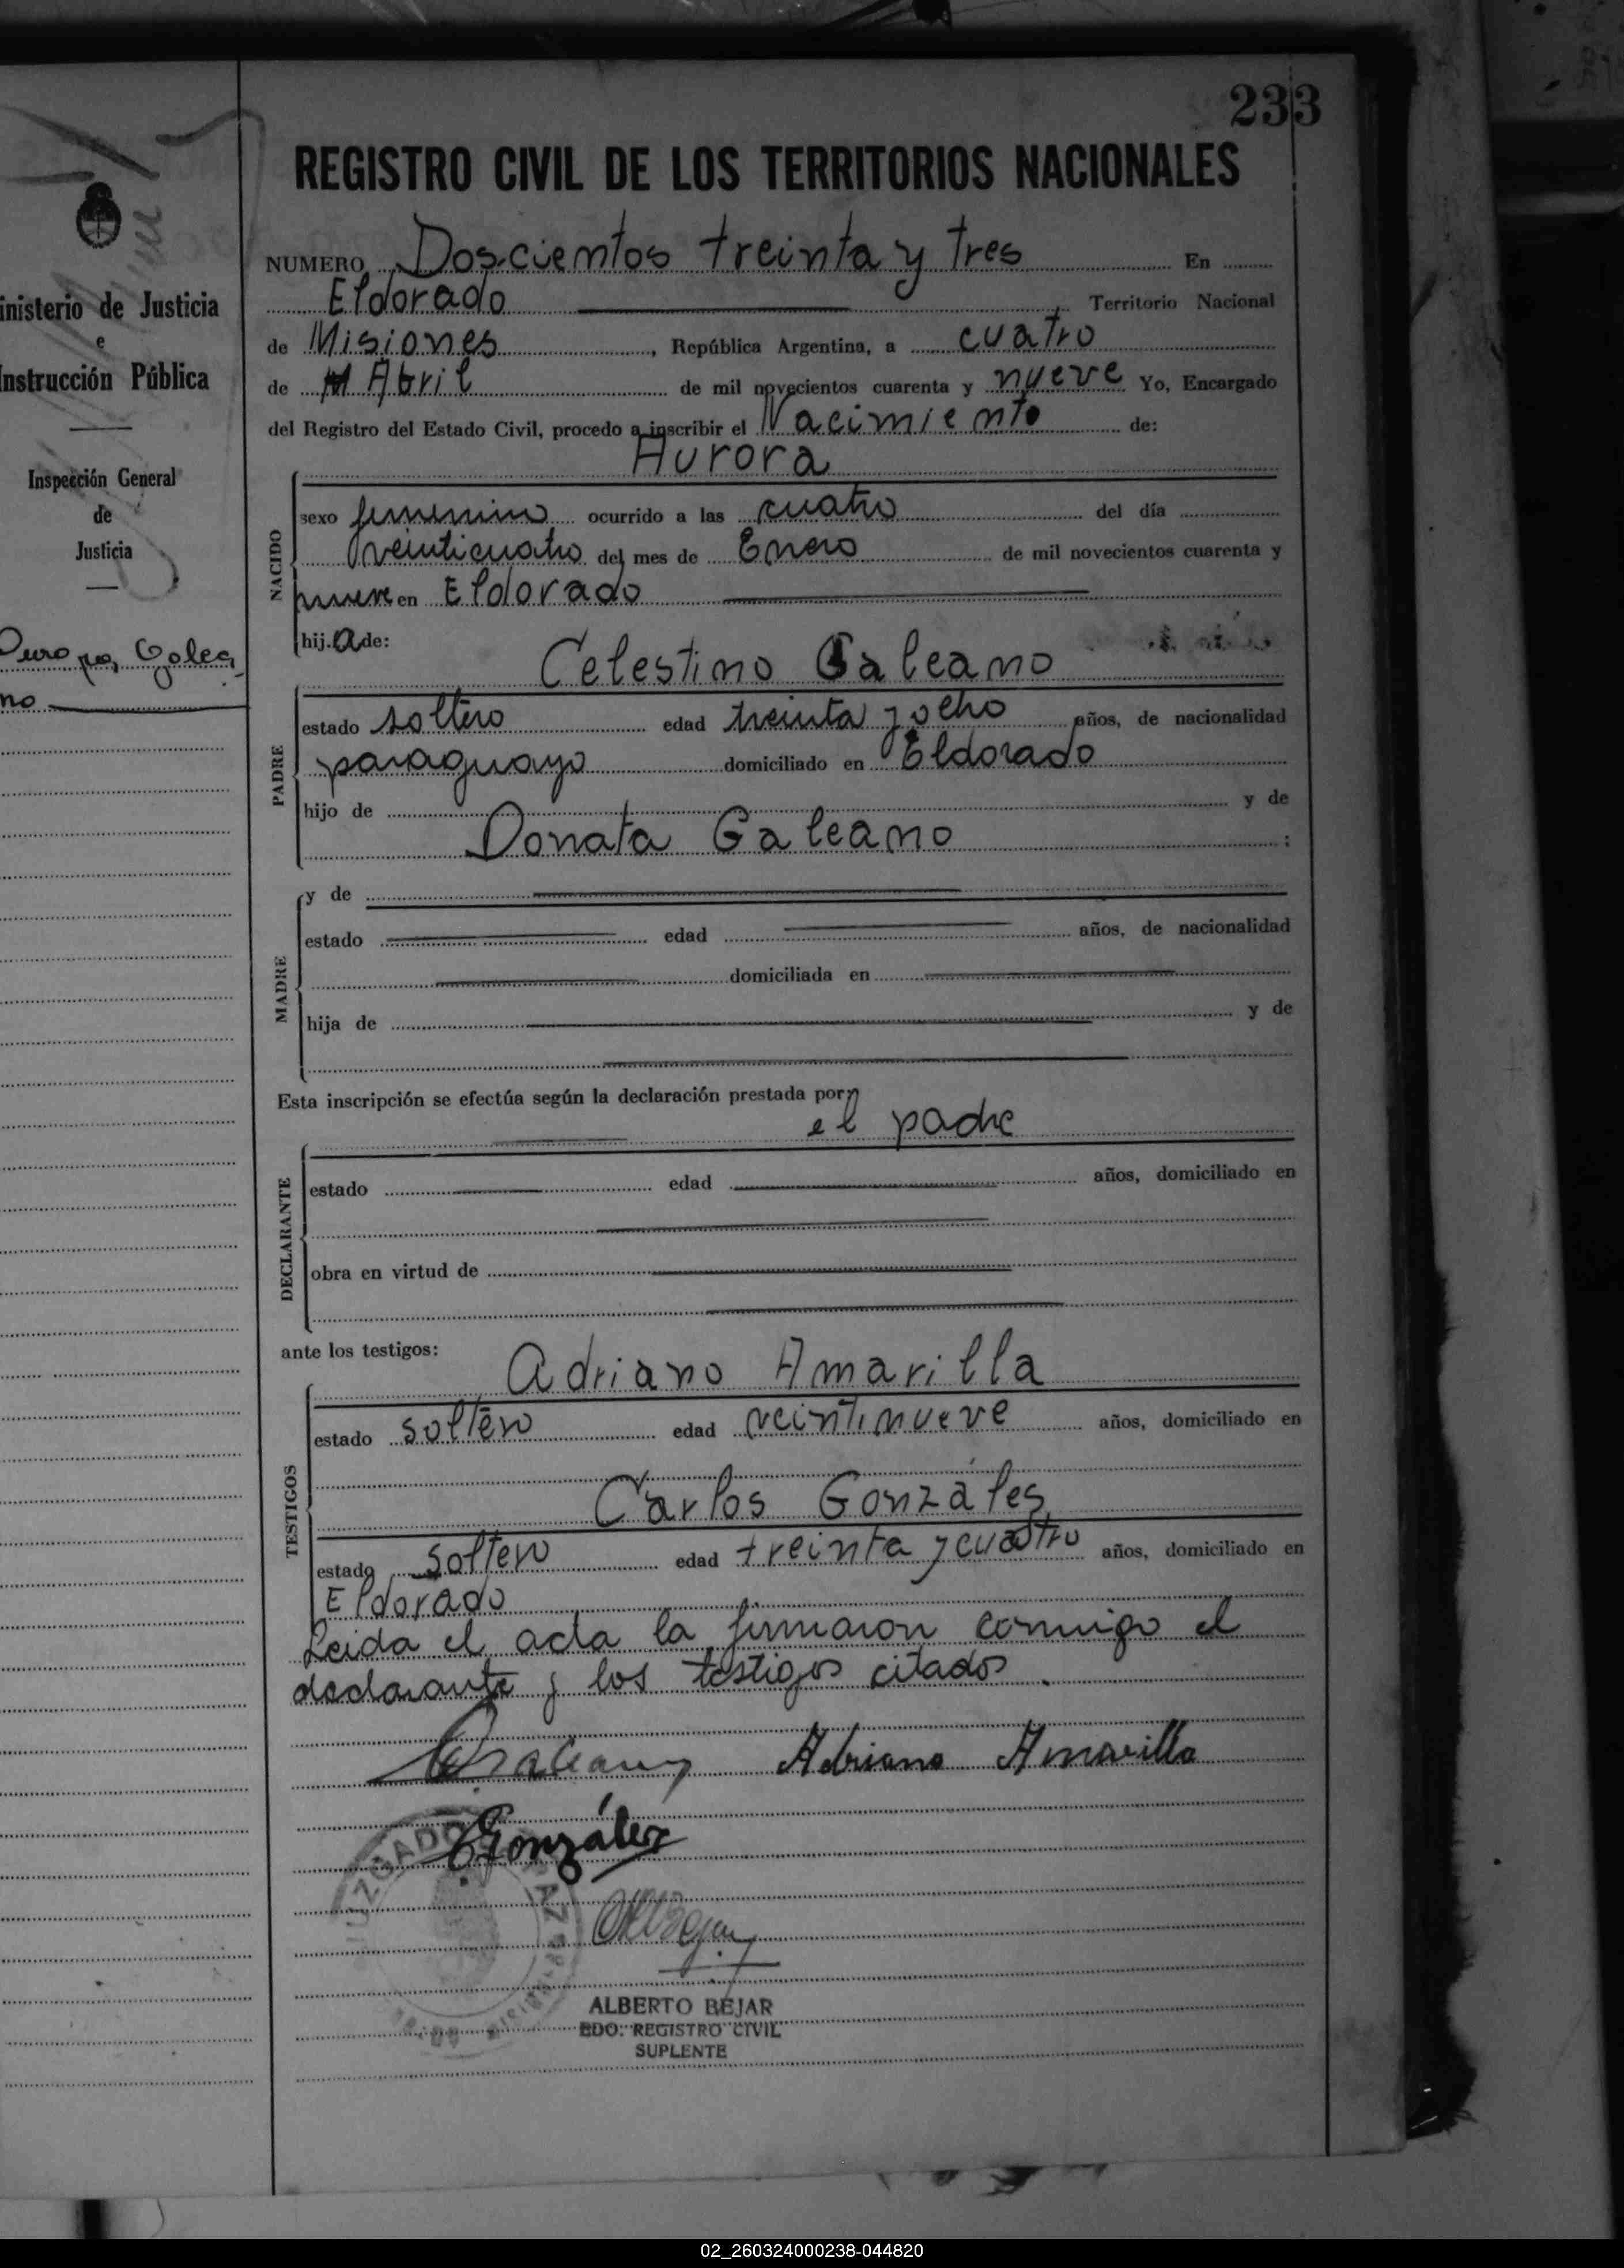 233
REGISTRO CIVIL DE LOS TERRITORIOS NACIONALES
inisterio de Justicia
e
Instrucción Pública
Inspección General
de
Justicia
Galea
no
NUMERO Doscientos treinta y tres En
Eldorado Territorio Nacional
de Misiones, República Argentina, a cuatro
de Abril de mil novecientos cuarenta y nueve Yo, Encargado
del Registro del Estado Civil, procedo a inscribir el Nacimiento de:
Aurora
NACIDO
sexo femenino ocurrido a las cuatro del día
veinticuatro del mes de Enero de mil novecientos cuarenta y
nueve en Eldorado
hij.a de:
Celestino Galeano
PADRE
estado soltero edad treinta y ocho años, de nacionalidad
paraguayo domiciliado en Eldorado
hijo de y de
Donata Galeano ;
MADRE
y de
estado edad años, de nacionalidad
domiciliada en
hija de y de
Esta inscripción se efectúa según la declaración prestada por
el padre
DECLARANTE
estado edad años, domiciliado en
obra en virtud de
ante los testigos:
Adriano Amarilla
TESTIGOS
estado soltero edad veintinueve años, domiciliado en
Carlos Gonzáles
estado soltero edad treinta y cuatro años, domiciliado en
Eldorado
Leida el acta la firmaron conmigo el
declarante y los testigos citados.
Galeano Adriano Amarilla
González
JUZGADO
ALBERTO BEJAR
EDO. REGISTRO CIVIL
SUPLENTE
02_260324000238-044820